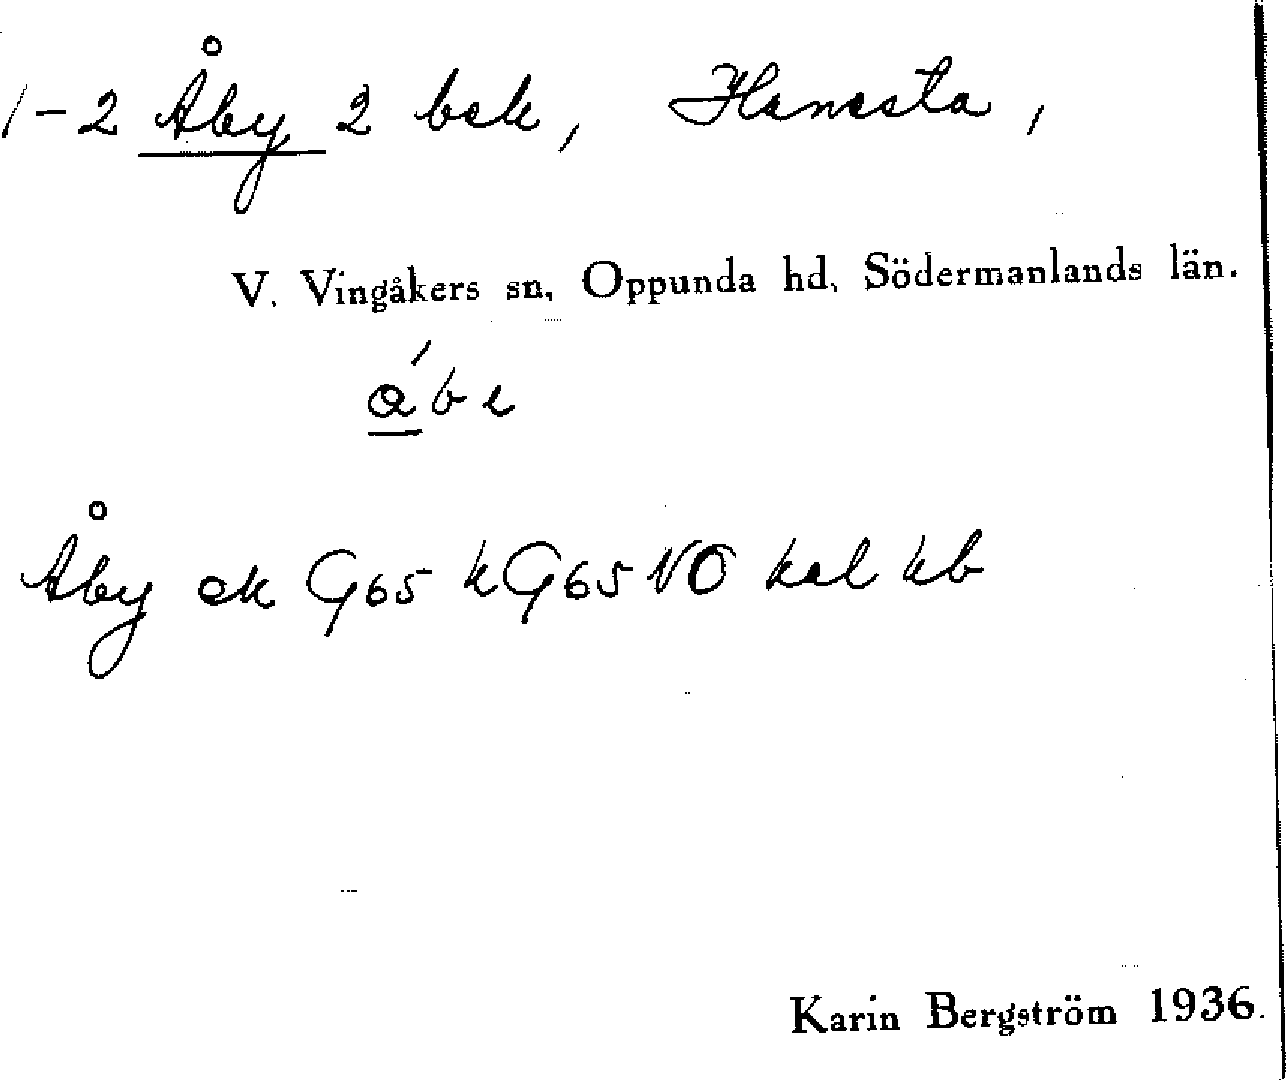 1-2 Åby 2 bek, Hanesta,
V. Vingåkers sn, Oppunda hd, Södermanlands län.
a̲´be
Åby ek G65 kG65NO kal kb
Karin Bergström 1936.